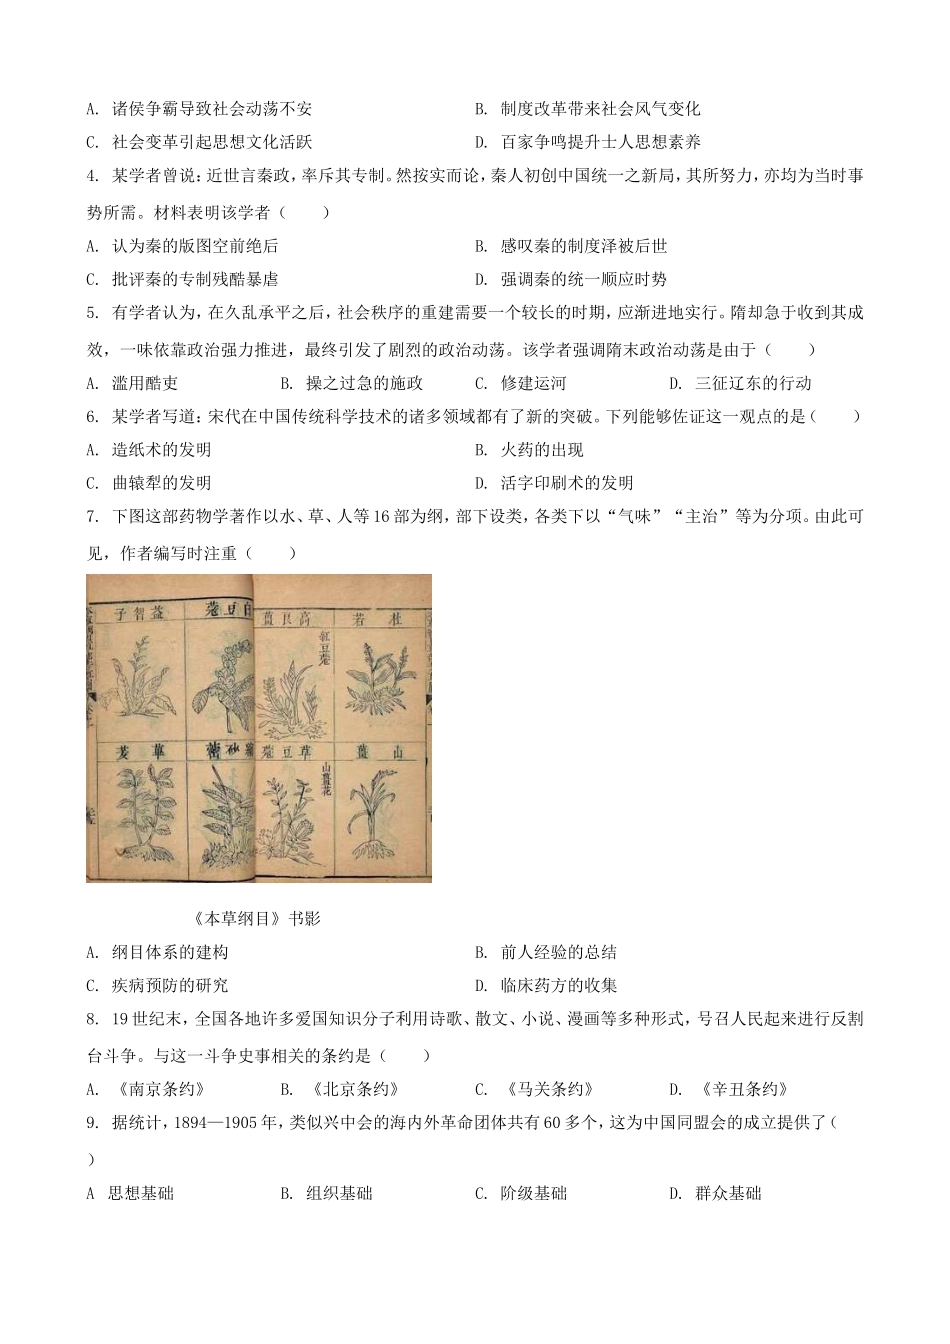 A. 诸侯争霸导致社会动荡不安 B. 制度改革带来社会风气变化
C. 社会变革引起思想文化活跃 D. 百家争鸣提升士人思想素养
4. 某学者曾说:近世言秦政,率斥其专制。然按实而论,秦人初创中国统一之新局,其所努力,亦均为当时事
势所需。材料表明该学者（　　）
A. 认为秦的版图空前绝后 B. 感叹秦的制度泽被后世
C. 批评秦的专制残酷暴虐 D. 强调秦的统一顺应时势
5. 有学者认为,在久乱承平之后,社会秩序的重建需要一个较长的时期,应渐进地实行。隋却急于收到其成
效，一味依靠政治强力推进，最终引发了剧烈的政治动荡。该学者强调隋末政治动荡是由于（　　）
A. 滥用酷吏 B. 操之过急的施政 C. 修建运河 D. 三征辽东的行动
6. 某学者写道:宋代在中国传统科学技术的诸多领域都有了新的突破。下列能够佐证这一观点的是（　　）
A. 造纸术的发明 B. 火药的出现
C. 曲辕犁的发明 D. 活字印刷术的发明
7. 下图这部药物学著作以水、草、人等 16 部为纲,部下设类,各类下以“气味”“主治”等为分项。由此可
见，作者编写时注重（　　）
子智益 蔻豆白 薑良高 若杜
紅豆蔻
茇蓽 蔻豆草 薑山
山薑花
《本草纲目》书影
A. 纲目体系的建构 B. 前人经验的总结
C. 疾病预防的研究 D. 临床药方的收集
8. 19 世纪末,全国各地许多爱国知识分子利用诗歌、散文、小说、漫画等多种形式,号召人民起来进行反割
台斗争。与这一斗争史事相关的条约是（　　）
A. 《南京条约》 B. 《北京条约》 C. 《马关条约》 D. 《辛丑条约》
9. 据统计,1894—1905 年,类似兴中会的海内外革命团体共有 60 多个,这为中国同盟会的成立提供了（
）
A 思想基础 B. 组织基础 C. 阶级基础 D. 群众基础